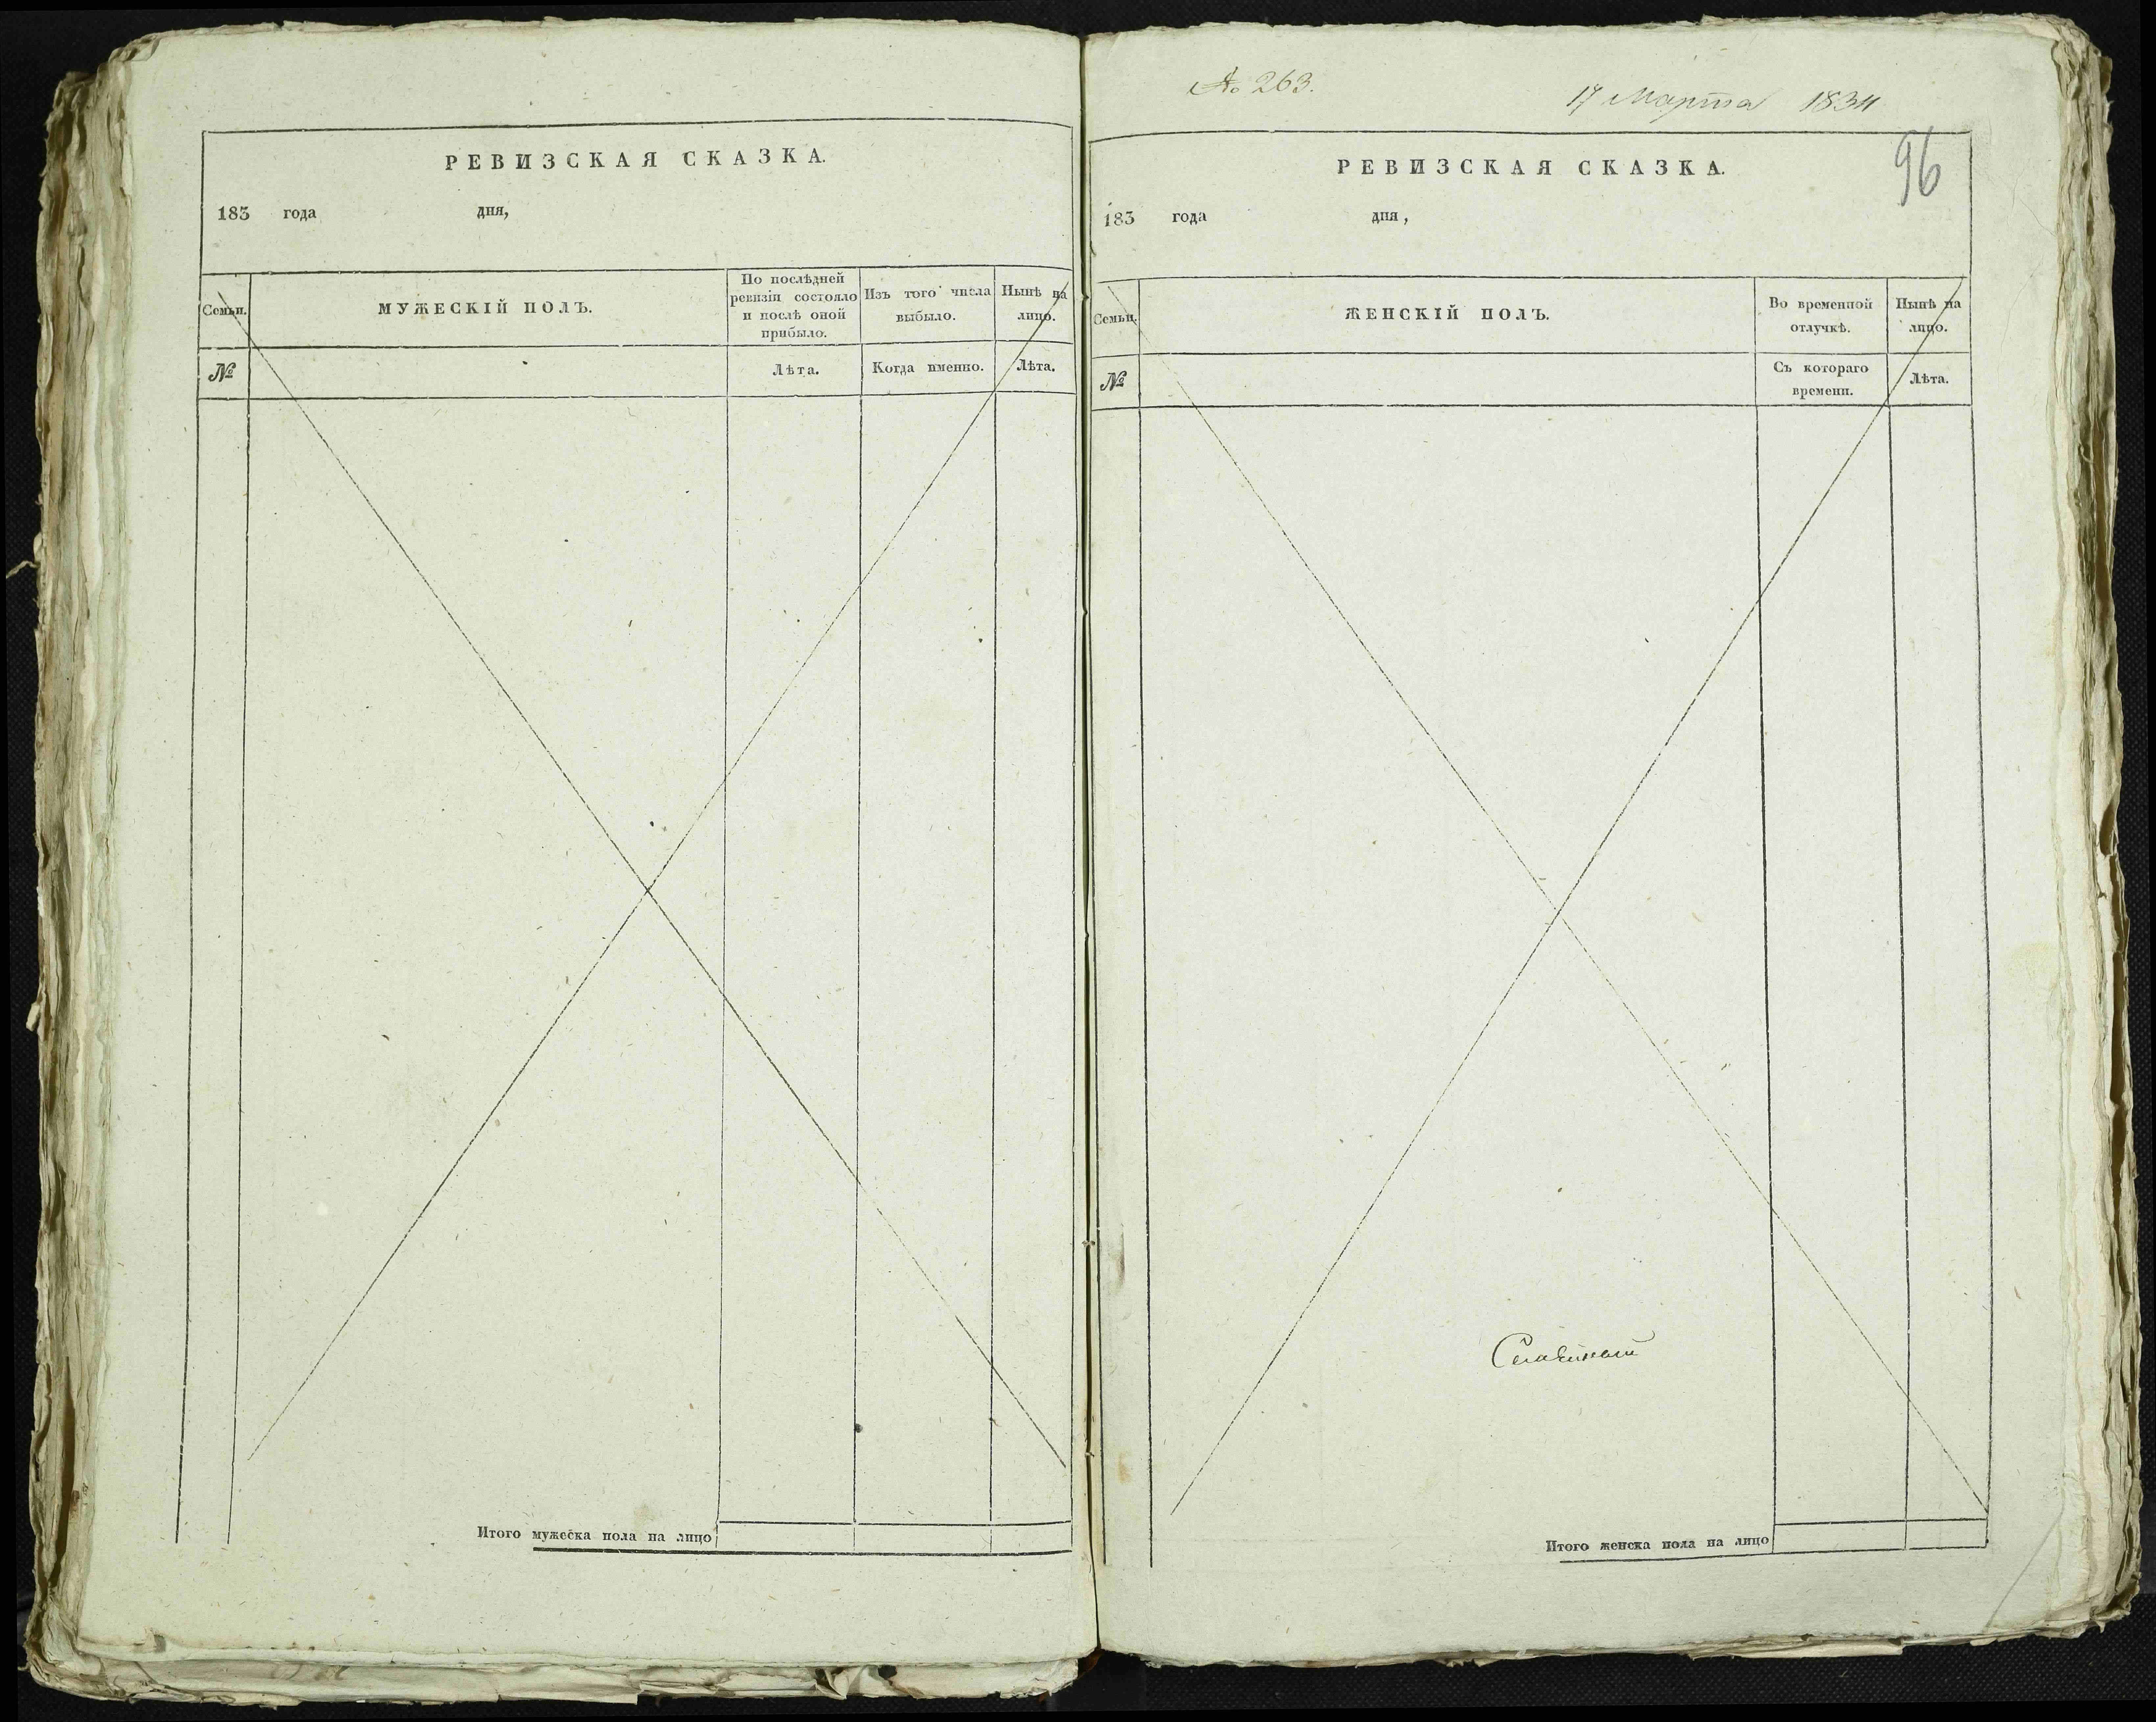 РЕВИЗСКАЯ СКАЗКА.
183 года дня,
Семьи.
МУЖЕСКІЙ ПОЛЪ.
По послѣдней ревизіи состояло и послѣ оной прибыло.
Изъ того числа выбыло.
Нынѣ на лицо.
№
Лѣта.
Когда именно.
Лѣта.
Итого мужеска пола на лицо
№ 263.
17 Марта 1834
96
РЕВИЗСКАЯ СКАЗКА.
183 года дня,
Семьи.
ЖЕНСКІЙ ПОЛЪ.
Во временной отлучкѣ.
Нынѣ на лицо.
№
Съ котораго времени.
Лѣта.
Итого женска пола на лицо